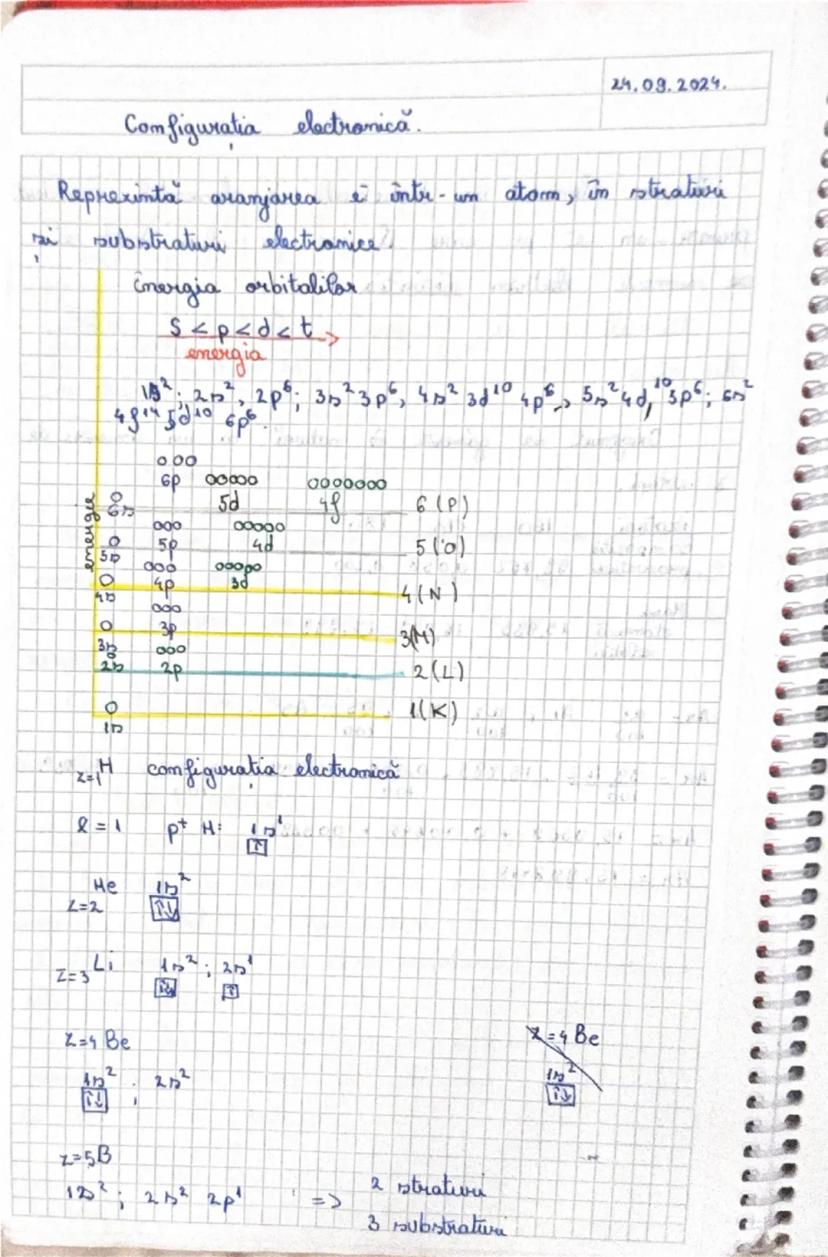 24.09.2024.
Configurația electronică.
Reprezintă aranjarea ē într-un atom, în straturi
și substraturi electronice
Energia orbitalilor
S < p < d < t
energia
1s²; 2s², 2p⁶; 3s² 3p⁶, 4s² 3d¹⁰ 4p⁶, 5s² 4d, ¹⁰ 5p⁶; 6s²
4f¹⁴ 5d¹⁰ 6p⁶.
energie
6p
6s 5d 4f 6 (P)
5s 5p 4d 5 (O)
4s 4p 3d 4 (N)
3s 3p 3(M)
2s 2p 2 (L)
1s 1(K)
z=1 H configurația electronică
z = 1 p⁺ H: 1s¹
↑
He 1s²
Z=2 ↑↓
z=3 Li 1s²; 2s¹
↑↓ ↑
Z=4 Be
1s²; 2s²
↑↓
Z=4 Be
1s²
↑↓
z=5B
1s²; 2s² 2p¹ => 2 straturi
3 substraturi